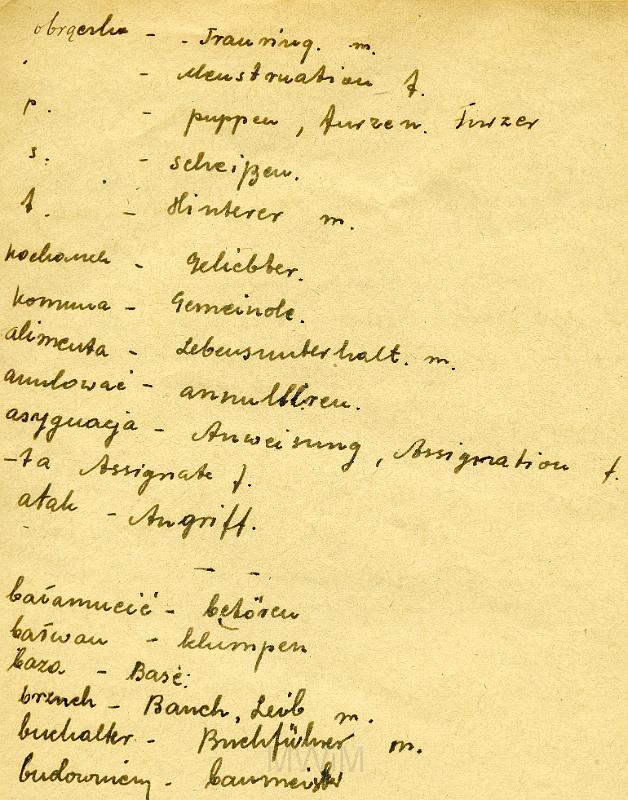 obrączka - - Trauring. m.
- Menstruation f.
p. - puppen, furzen. Furzer
s. - scheißen.
t. - Hinterer m.
kochanek - Geliebter.
komuna - Gemeinde.
alimenta - Lebensunterhalt. m.
anulować - annulieren.
asygnacja - Anweisung, Assignation f.
-ta Assignate f.
atak - Angriff.
- -
bałamucić - betören
bałwan - klumpen
baza - Base.
brzuch - Bauch, Leib m.
buchalter - Buchführer m.
budowniczy - baumeister
MWM